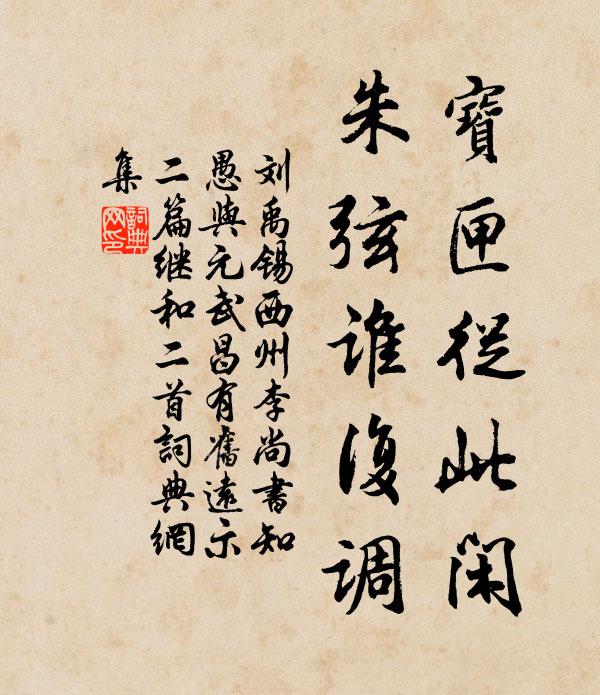 寶匣從此閑
朱弦誰復調
刘禹锡西州李尚書知
愚與元武昌有舊遠示
二篇继和二首詞典網
集
詞典网印